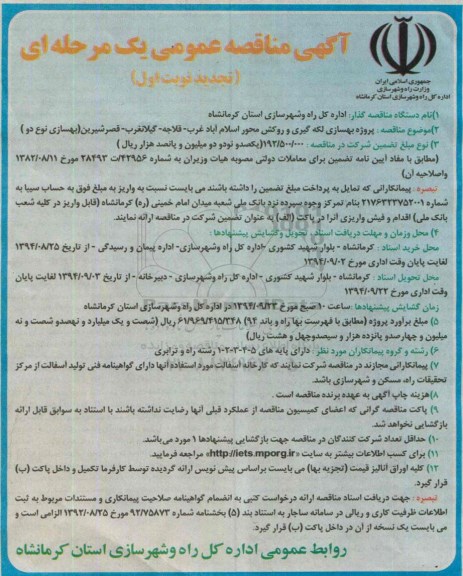 آگهی مناقصه عمومی یک مرحله ای
( تجدید نوبت اول)
جمهوری اسلامی ایران
وزارت راه وشهرسازی
اداره کل راه وشهرسازی استان کرمانشاه
۱)نام دستگاه مناقصه گذار: اداره کل راه وشهرسازی استان کرمانشاه
۲)موضوع مناقصه: پروژه بهسازی لکه گیری و روکش محور اسلام آباد غرب- قلاجه- گیلانغرب- قصرشیرین(بهسازی نوع دو )
۳) نوع مبلغ تضمین شرکت در مناقصه : ۱۹۲/۵۰۰/۰۰۰(یکصدو نودو دو میلیون و پانصد هزار ریال )
(مطابق با مفاد آیین نامه تضمین برای معاملات دولتی مصوبه هیات وزیران به شماره ۴۲۹۵۶/ت ۲۸۴۹۳ مورخ ۱۳۸۲/۰۸/۱۱
واصلاحیه آن)
تبصره : پیمانکارانی که تمایل به پرداخت مبلغ تضمین را داشته باشند می بایست نسبت به واریز به مبلغ فوق به حساب سیبا به
شماره ۲۱۷۶۳۲۳۷۵۲۰۰۱ بنام تمرکز وجوه سپرده نزد بانک ملی شعبه میدان امام خمینی (ره) کرمانشاه (قابل واریز در کلیه شعب
بانک ملی) اقدام و فیش واریزی آنرا در پاکت (الف) به عنوان تضمین شرکت در مناقصه ارائه نمایند.
۴) محل وزمان و مهلت دریافت اسناد، تحویل وگشایش پیشنهادها :
محل خرید اسناد : کرمانشاه - بلوار شهید کشوری -اداره کل راه وشهرسازی- اداره پیمان و رسیدگی - از تاریخ ۱۳۹۴/۰۸/۲۵
لغایت پایان وقت اداری مورخ ۱۳۹۴/۰۹/۰۲
محل تحویل اسناد : کرمانشاه - بلوار شهید کشوری - اداره کل راه وشهرسازی - دبیرخانه - از تاریخ ۱۳۹۴/۰۹/۰۳ لغایت پایان
وقت اداری مورخ ۱۳۹۴/۰۹/۲۲
زمان گشایش پیشنهادها :ساعت ۱۰ صبح مورخ ۱۳۹۴/۰۹/۲۳ در اداره کل راه وشهرسازی استان کرمانشاه
۵) مبلغ برآورد پروژه (مطابق با فهرست بها راه و باند ۹۴) ۶۱/۹۶۹/۴۱۵/۳۴۸ ریال (شصت و یک میلیارد و نهصدو شصت و نه
میلیون و چهارصدو پانزده هزار و سیصدوچهل و هشت ریال)
۶) رشته و گروه پیمانکاران مورد نظر : دارای پایه های ۵-۴-۳-۲-۱ رشته راه و ترابری
۷) پیمانکارانی مجازند در مناقصه شرکت نمایند که کارخانه آسفالت مورد استفاده آنها دارای گواهینامه فنی تولید آسفالت از مرکز
تحقیقات راه، مسکن و شهرسازی باشد.
۸)هزینه چاپ آگهی به عهده برنده مناقصه است .
۹) پاکت مناقصه گرانی که اعضای کمیسیون مناقصه از عملکرد قبلی آنها رضایت نداشته باشند با استناد به سوابق قابل ارائه
بازگشایی نخواهد شد.
۱۰) حداقل تعداد شرکت کنندگان در مناقصه جهت بازگشایی پیشنهادها ۱ مورد می‌باشد.
۱۱) برای کسب اطلاعات بیشتر به سایت «http://iets.mporg.ir» مراجعه فرمایید.
۱۲) کلیه اوراق آنالیز قیمت (تجزیه بها) می بایست براساس پیش نویس ارائه گردیده توسط کارفرما تکمیل و داخل پاکت (ب)
قرار گیرد.
تبصره : جهت دریافت اسناد مناقصه ارائه درخواست کتبی به انضمام گواهینامه صلاحیت پیمانکاری و مستندات مربوط به ثبت
اطلاعات ظرفیت کاری و ریالی در سامانه ساجار به استناد بند (۵) بخشنامه شماره ۹۲/۷۵۸۷۳ مورخ ۱۳۹۲/۰۸/۲۵ الزامی است و
می بایست یک نسخه از آن در داخل پاکت (ب) قرار گیرد.
روابط عمومی اداره کل راه وشهرسازی استان کرمانشاه